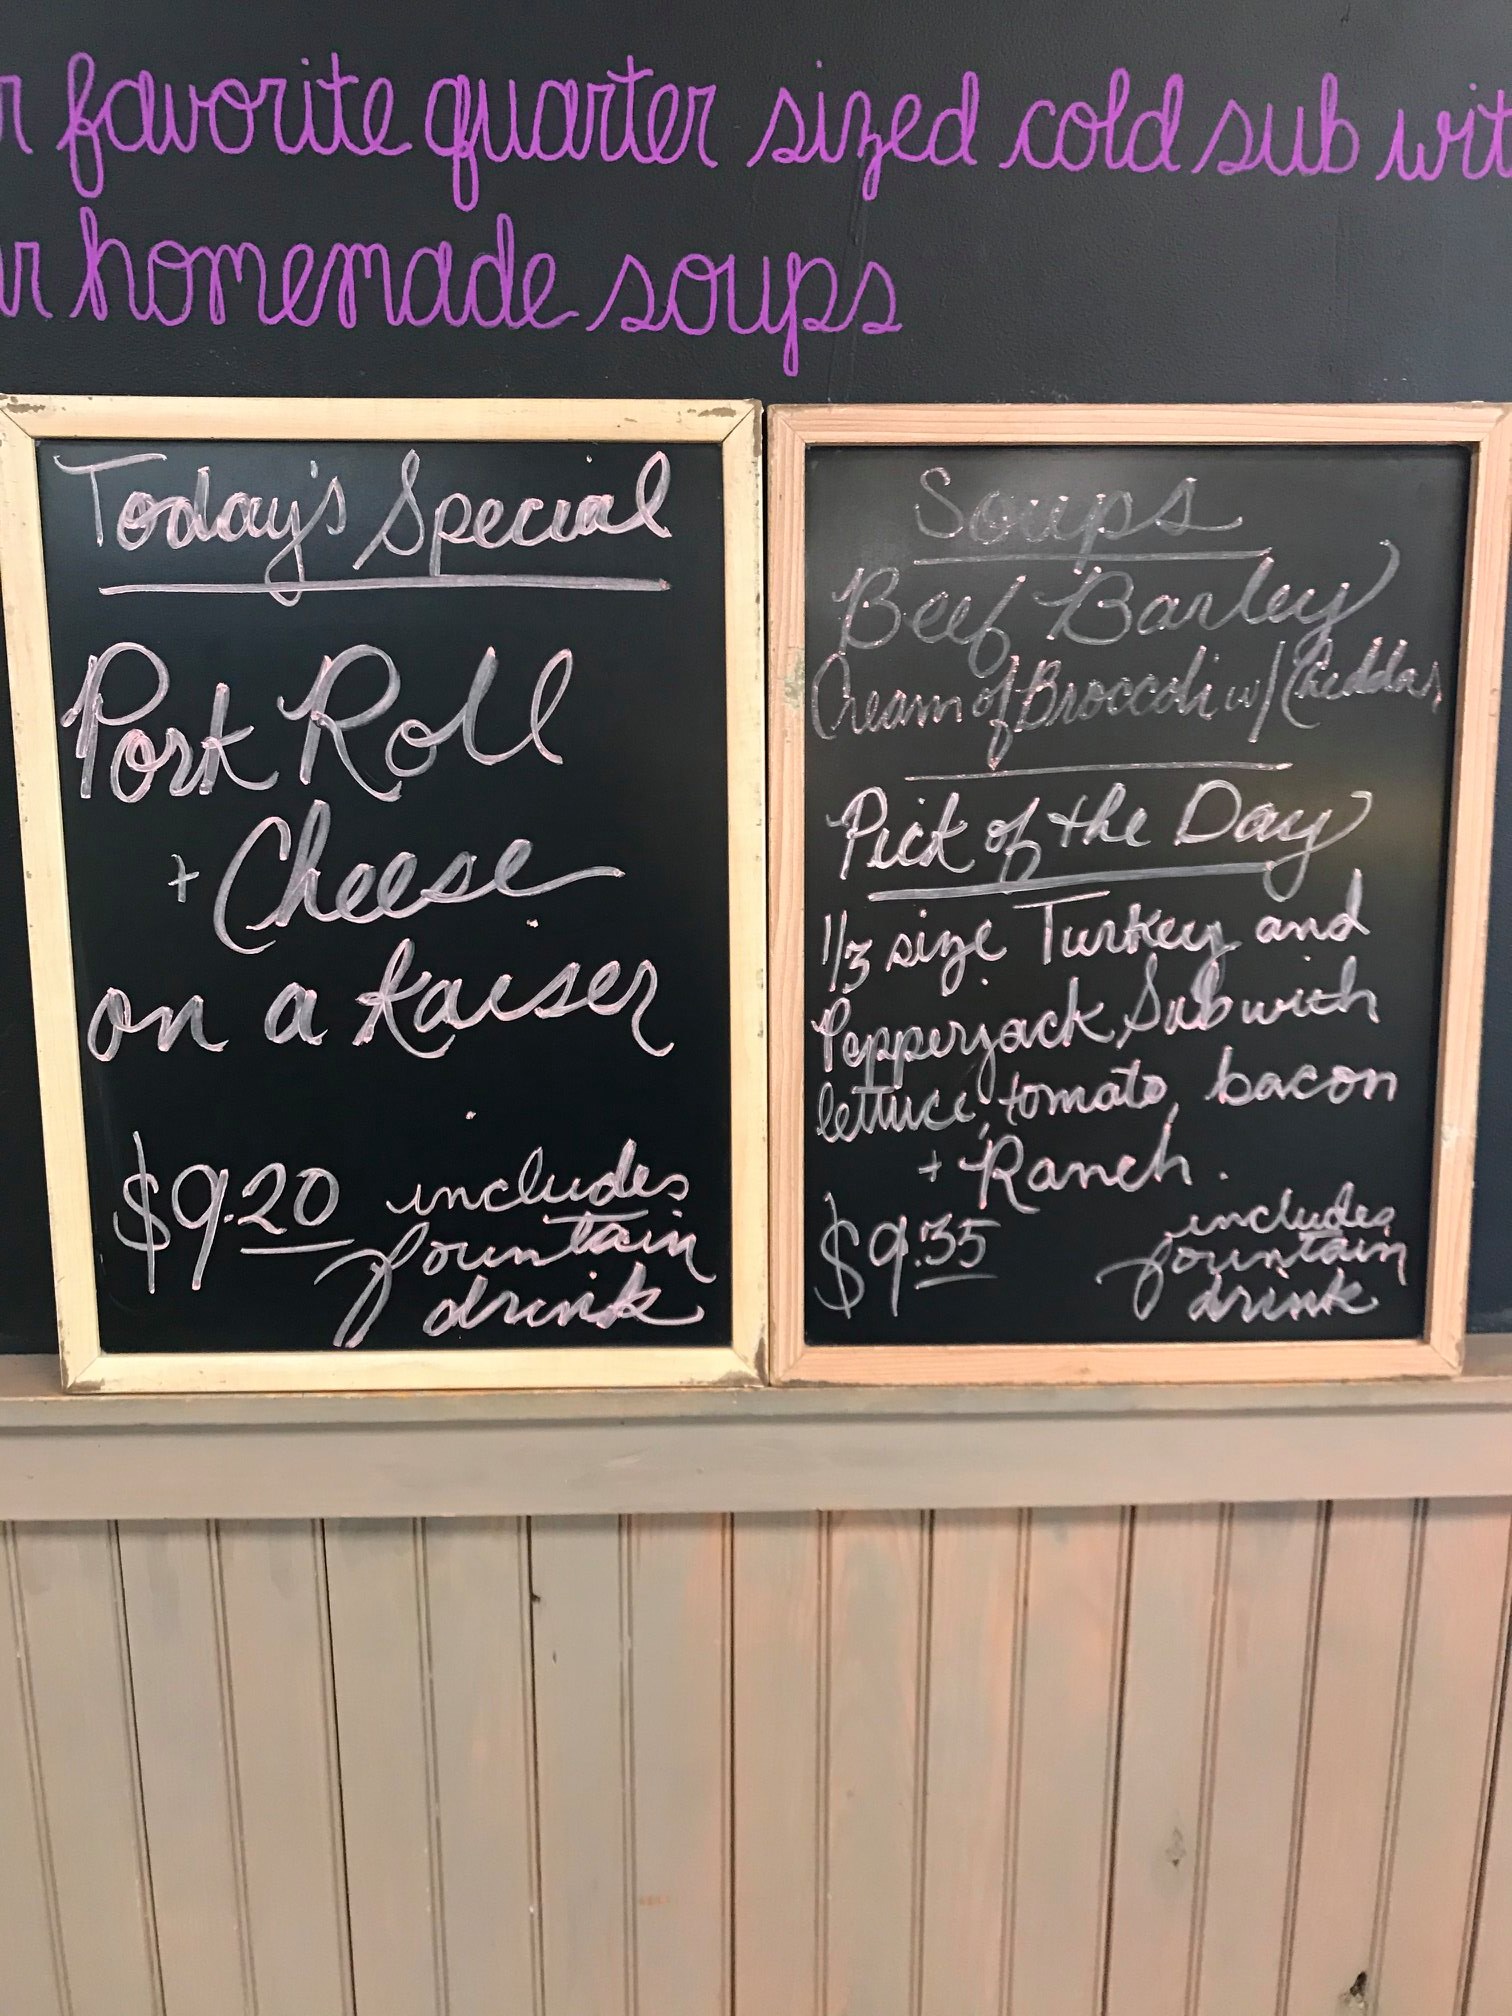 favorite quarter sized cold sub wit
homemade soups
Today's Special
Pork Roll
+ Cheese
on a kaiser
$9.20 includes
fountain
drink
Soups
Beef Barley
Cream of Broccoli w/ Cheddar
Pick of the Day
1/3 size Turkey and
Pepperjack Sub with
lettuce, tomato, bacon
+ Ranch.
$9.35 includes
fountain
drink